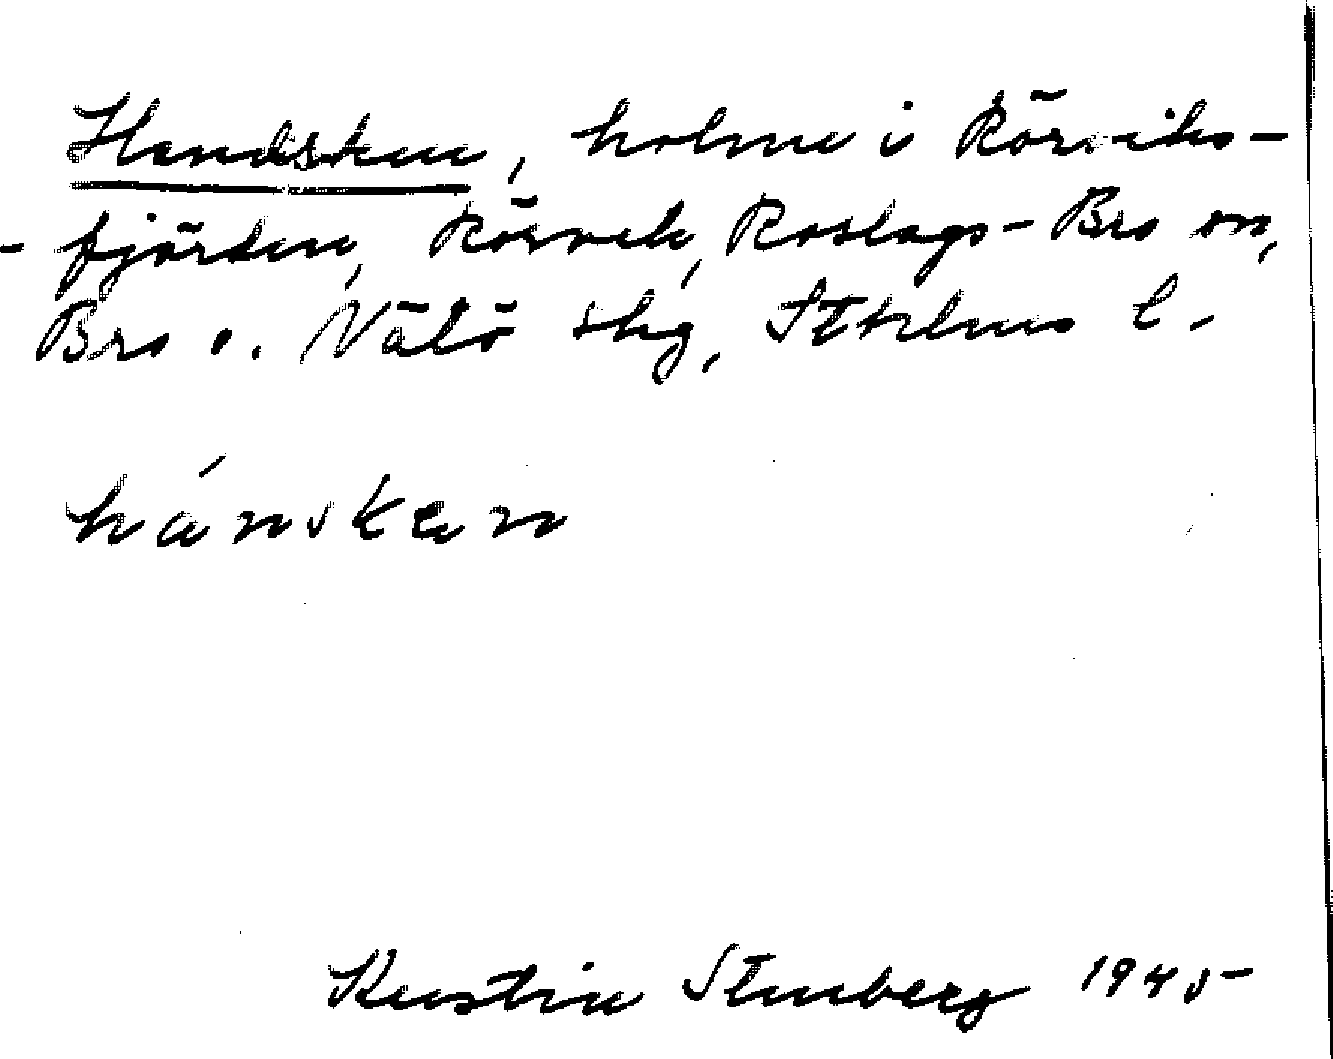 Handsken, holme i Rörviks-
- fjärden, Rörvik, Roslags-Bro sn,
Bro o. Vätö skg, Sthlms l.
hánsken
Kerstin Stenberg 1945